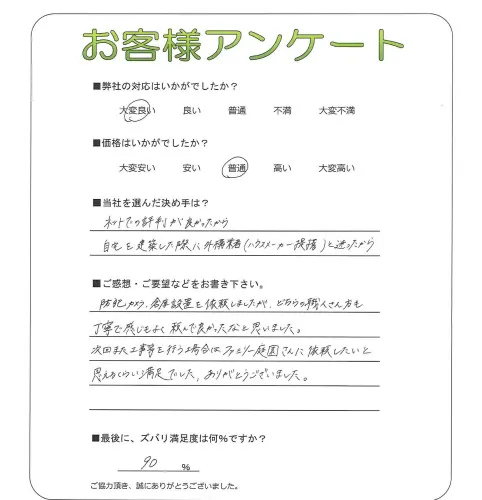 お客様アンケート
■弊社の対応はいかがでしたか?
大変良い 良い 普通 不満 大変不満
■価格はいかがでしたか?
大変安い 安い 普通 高い 大変高い
■当社を選んだ決め手は?
ネットでの評判が良かったから
自宅を建築した際に外構業者(ハウスメーカー推薦)と迷ったから
■ご感想・ご要望などをお書き下さい。
防犯カメラ、倉庫設置を依頼しましたが、どちらの職人さん方も
丁寧で感じもよく頼んで良かったなと思いました。
次回また工事等を行う場合はファミリー庭園さんに依頼したいと
思えるくらい満足でした。ありがとうございました。
■最後に、ズバリ満足度は何%ですか?
90 %
ご協力頂き、誠にありがとうございました。